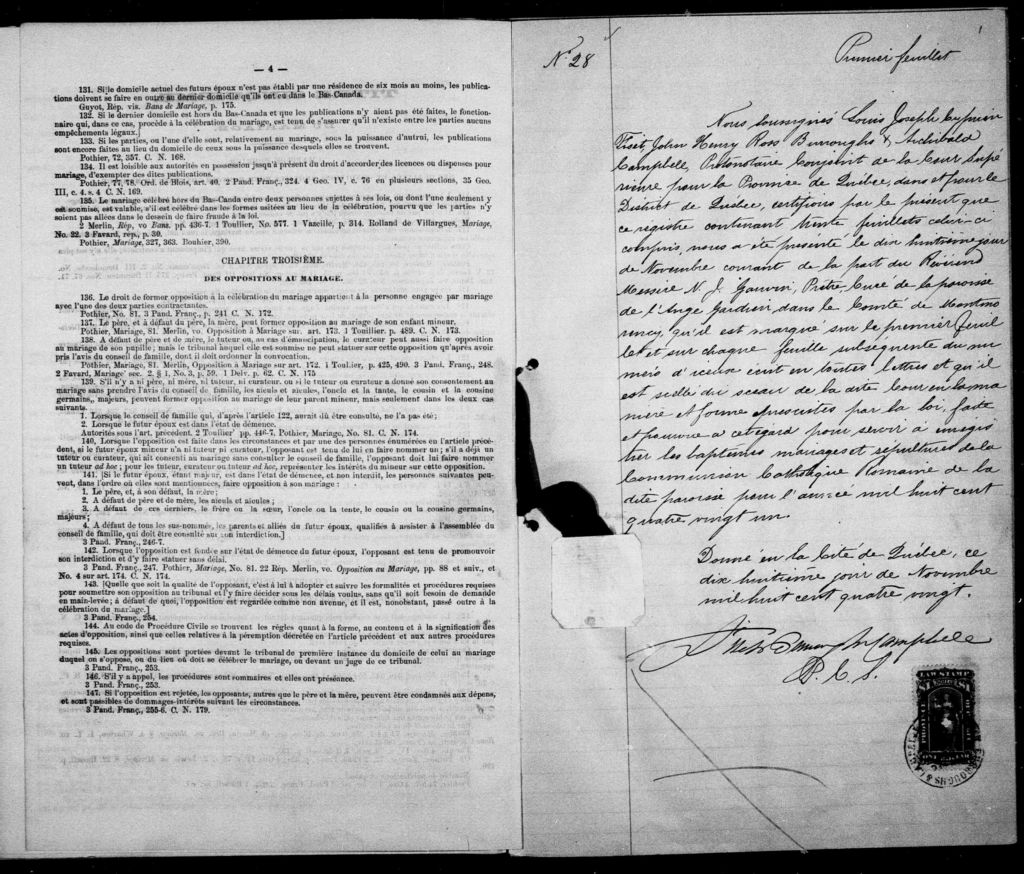 — 4 —
131. Si le domicile actuel des futurs époux n'est pas établi par une résidence de six mois au moins, les publica-
tions doivent se faire en outre au dernier domicile qu'ils ont eu dans le Bas-Canada.
Guyot, Rép. vis. Bans de Mariage, p. 175.
132. Si le dernier domicile est hors du Bas-Canada et que les publications n'y aient pas été faites, le fonction-
naire qui, dans ce cas, procède à la célébration du mariage, est tenu de s'assurer qu'il n'existe entre les parties aucuns
empêchements légaux.]
133. Si les parties, ou l'une d'elle sont, relativement au mariage, sous la puissance d'autrui, les publications
sont encore faites au lieu du domicile de ceux sous la puissance desquels elles se trouvent.
Pothier, 72, 357. C. N. 168.
134. Il est loisible aux autorités en possession jusqu'à présent du droit d'accorder des licences ou dispenses pour
mariage, d'exempter des dites publications.
Pothier, 77, 78. Ord. de Blois, art. 40. 2 Pand. Franç., 324. 4 Geo. IV, c. 76 en plusieurs sections, 35 Geo.
III, c. 4. s. 4 C. N. 169.
135. Le mariage célébré hors du Bas-Canada entre deux personnes sujettes à ses lois, ou dont l'une seulement y
est soumise, est valable, s'il est célébré dans les formes usitées au lieu de la célébration, pourvu que les parties n'y
soient pas allées dans le dessein de faire fraude à la loi.
2 Merlin, Rép, vo Bans. pp. 436-7. 1 Toullier, No. 577. 1 Vazeille, p. 314. Rolland de Villargues, Mariage,
No. 22. 3 Favard, rép., p. 30.
Pothier, Mariage, 327, 363. Bouhier, 390.
CHAPITRE TROISIÈME.
DES OPPOSITIONS AU MARIAGE.
136. Le droit de former opposition à la célébration du mariage appartient à la personne engagée par mariage
avec l'une des deux parties contractantes.
Pothier, No. 81. 3 Pand. Franç., p. 241 C. N. 172.
137. Le père, et à défaut du père, la mère, peut former opposition au mariage de son enfant mineur.
Pothier, Mariage, 81. Merlin, vo. Opposition à Mariage sur. art. 173. 1 Toullier. p. 489. C. N. 173.
138. A défaut de père et de mère, le tuteur ou, au cas d'émancipation, le curateur peut aussi faire opposition
au mariage de son pupille; mais le tribunal lequel elle est soumise ne peut statuer sur cette opposition qu'après avoir
pris l'avis du conseil de famille, dont il doit ordonner la convocation.
Pothier, Mariage, 81. Merlin, Opposition à Mariage sur art. 172. 1 Toullier, p. 425, 490. 3 Pand. Franç., 248.
2 Favard, Mariage' sec. 2. § 1, No. 3, p. 59. 1 Delv. p. 62. C. N. 175
139. S'il n'y a ni père, ni mère, ni tuteur, ni curateur, ou si le tuteur ou curateur a donné son consentement au
mariage sans prendre l'avis du conseil de famille, les aïeuls et aïeules, l'oncle et la tante, le cousin et la cousine
germains, majeurs, peuvent former opposition au mariage de leur parent mineur, mais seulement dans les deux cas
suivants.
1. Lorsque le conseil de famille qui, d'après l'article 122, aurait dû être consulté, ne l'a pas été;
2. Lorsque le futur époux est dans l'état de démence.
Autorités sous l'art. précédent. 2 Toullier pp. 446-7. Pothier, Mariage, No. 81. C. N. 174.
140. Lorsque l'opposition est faite dans les circonstances et par une des personnes énumérées en l'article précé-
dent, si le futur époux mineur n'a ni tuteur ni curateur, l'opposant est tenu de lui en faire nommer un; s'il a déjà un
tuteur ou curateur, qui ait consenti au mariage sans consulter le conseil de famille, l'opposant doit lui faire nommer
un tuteur ad hoc; pour les tuteur, curateur ou tuteur ad hoc, représenter les intérêts du mineur sur cette opposition.
141. [Si le futur époux, étant majeur, est dans l'état de démence, et non interdit, les personnes suivantes peu-
vent, dans l'ordre où elles sont mentionnées, faire opposition à son mariage:
1. Le père, et, à son défaut, la mère;
2. A défaut de père et de mère, les aïeuls et aïeules;
3. A défaut de ces derniers, le frère ou la sœur, l'oncle ou la tante, le cousin ou la cousine germains,
majeurs;
4. A défaut de tous les sus-nommés, les parents et alliés du futur époux, qualifiés à assister à l'assemblée du
conseil de famille, qui doit être consulté sur son interdiction.]
3 Pand. Franç., 246-7.
142. Lorsque l'opposition est fondée sur l'état de démence du futur époux, l'opposant est tenu de promouvoir
son interdiction et d'y faire statuer sans délai.
3 Pand. Franç., 247. Pothier, Mariage, No. 81. 22 Rép. Merlin, vo. Opposition au Mariage, pp. 88 et suiv., et
No. 4 sur art. 174. C. N. 174.
143. [Quelle que soit la qualité de l'opposant, c'est à lui à adopter et suivre les formalités et procédures requises
pour soumettre son opposition au tribunal et l'y faire décider sous les délais voulus, sans qu'il soit besoin de demande
en main-levée; à défaut de quoi, l'opposition est regardée comme non avenue, et il est, nonobstant, passé outre à la
célébration du mariage.]
3 Pand. Franç., 254.
144. Au code de Procédure Civile se trouvent les règles quant à la forme, au contenu et à la signification des
actes d'opposition, ainsi que celles relatives à la péremption décrétée en l'article précédent et aux autres procédures
requises.
145. Les oppositions sont portées devant le tribunal de première instance du domicile de celui au mariage
duquel on s'oppose, ou du lieu où doit se célébrer le mariage, ou devant un juge de ce tribunal.
3 Pand. Franç., 253.
146. S'il y a appel, les procédures sont sommaires et elles ont préséance.
3 Pand. Franç., 253.
147. Si l'opposition est rejetée, les opposants, autres que le père et la mère, peuvent être condamnés aux dépens,
et sont passibles de dommages-intérêts suivant les circonstances.
3 Pand. Franç., 255-6. C. N. 179.
No. 28
Premier feuillet
Nous soussignés Louis Joseph Cyprien
Fiset, John Henry Ross Burroughs & Archibald
Campbell, Protonotaire Conjoint de la Cour Supé
rieure pour la Province de Québec, dans et pour le
District de Québec, certifions par le présent que
ce registre contenant trente feuillets celui-ci
compris, nous a été présenté le dix huitième jour
de Novembre courant de la part du Révérend
Messire N. J. Gauvin, Prêtre, Curé de la paroisse
de l'Ange Gardien, dans le Comté de Montmo
rency, qu'il est marqué sur le premier feuil
let et sur chaque feuille subséquente du nu
mero d'iceux écrit en toutes lettres et qu'il
est scellé du sceau de la dite Cour en la ma
nière et forme prescrites par la loi, faite
et pourvue à cet égard pour servir à enregis
trer les baptêmes mariages et sépultures de la
Communion Catholique Romaine de la
dite paroisse pour l'année mil huit cent
quatre vingt un.
Donné en la Cité de Québec, ce
dix huitième jour de Novembre
mil huit cent quatre vingt.
Fiset Burroughs Campbell
P. C. S.
LAW STAMP
$1 $1
ONE DOLLAR